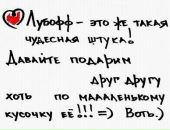 Лубофф – это же такая
чудесная штука!
Давайте подарим
друг другу
хоть по мааааленькому
кусочку её!!! =) Воть.)